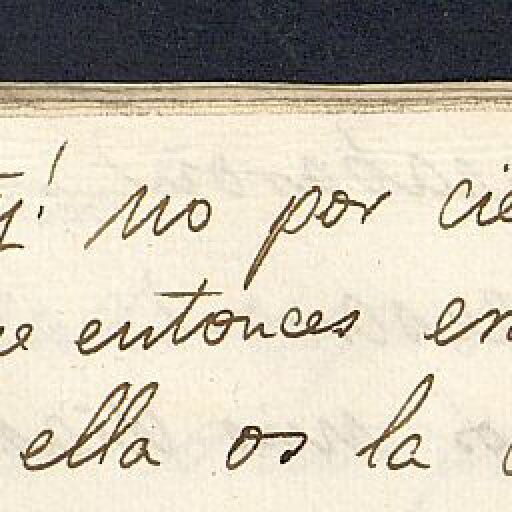 no por cie
entonces en
ella os la